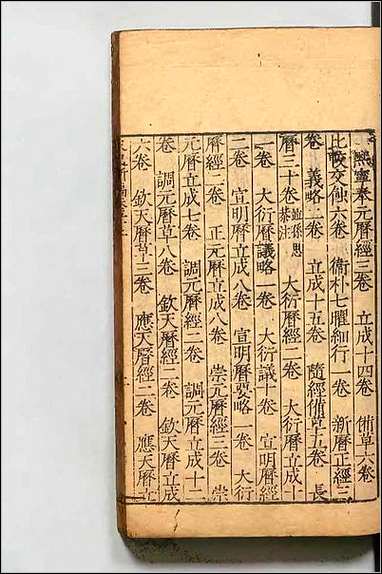 熙寧奉元曆經三卷 立成十四卷 備草六卷
比較交蝕六卷 衛朴七曜細行一卷 新曆正經三
卷 義略二卷 立成十五卷 隨經備草五卷 長
曆三十卷 大衍曆經二卷 大衍曆立成十
一卷 大衍曆議略一卷 大衍議十卷 宣明曆經
二卷 宣明曆立成八卷 宣明曆要略一卷 大衍
曆經二卷 正元曆立成八卷 崇元曆經三卷 崇
元曆立成七卷 調元曆經二卷 調元曆立成十二
卷 調元曆草八卷 欽天曆經二卷 欽天曆立成
六卷 欽天曆草三卷 應天曆經三卷 應天曆立